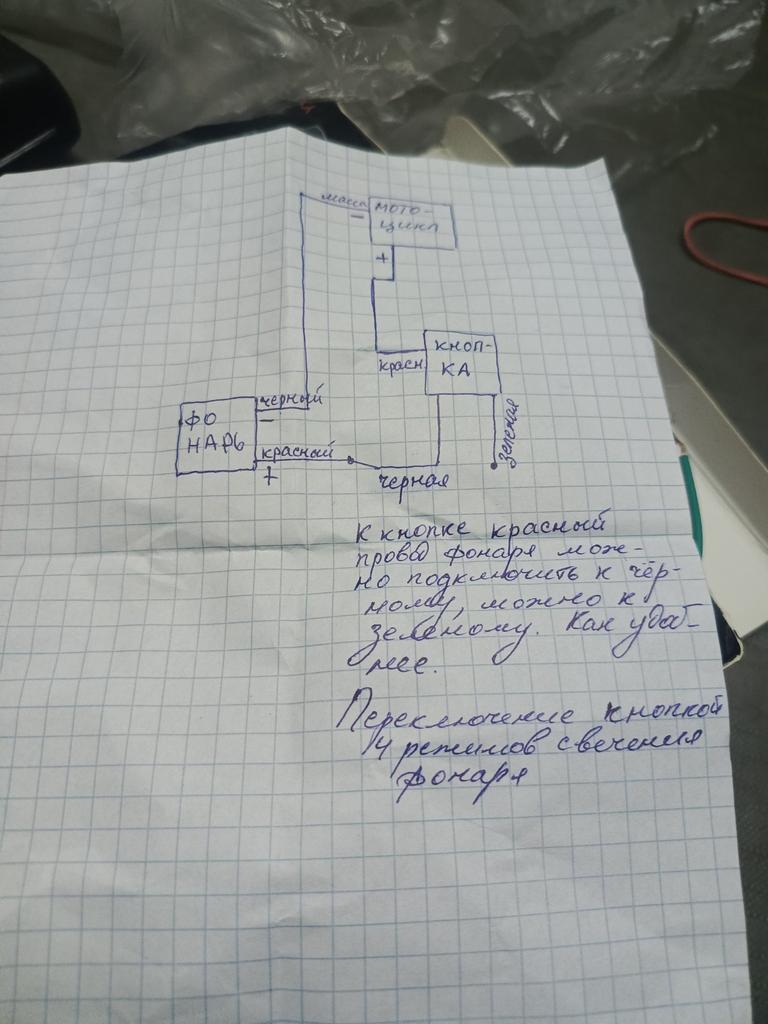 масса
–
МОТО-
ЦИКЛ
+
КНОП-
КА
красн
черный
–
ФО
НАРЬ
красный
+
черная
зеленая
К кнопке красный
провод фонаря мож-
но подключить к чёр-
ному, можно к
зеленому. Как удоб-
нее.
Переключение кнопкой
4 режимов свечения
фонаря